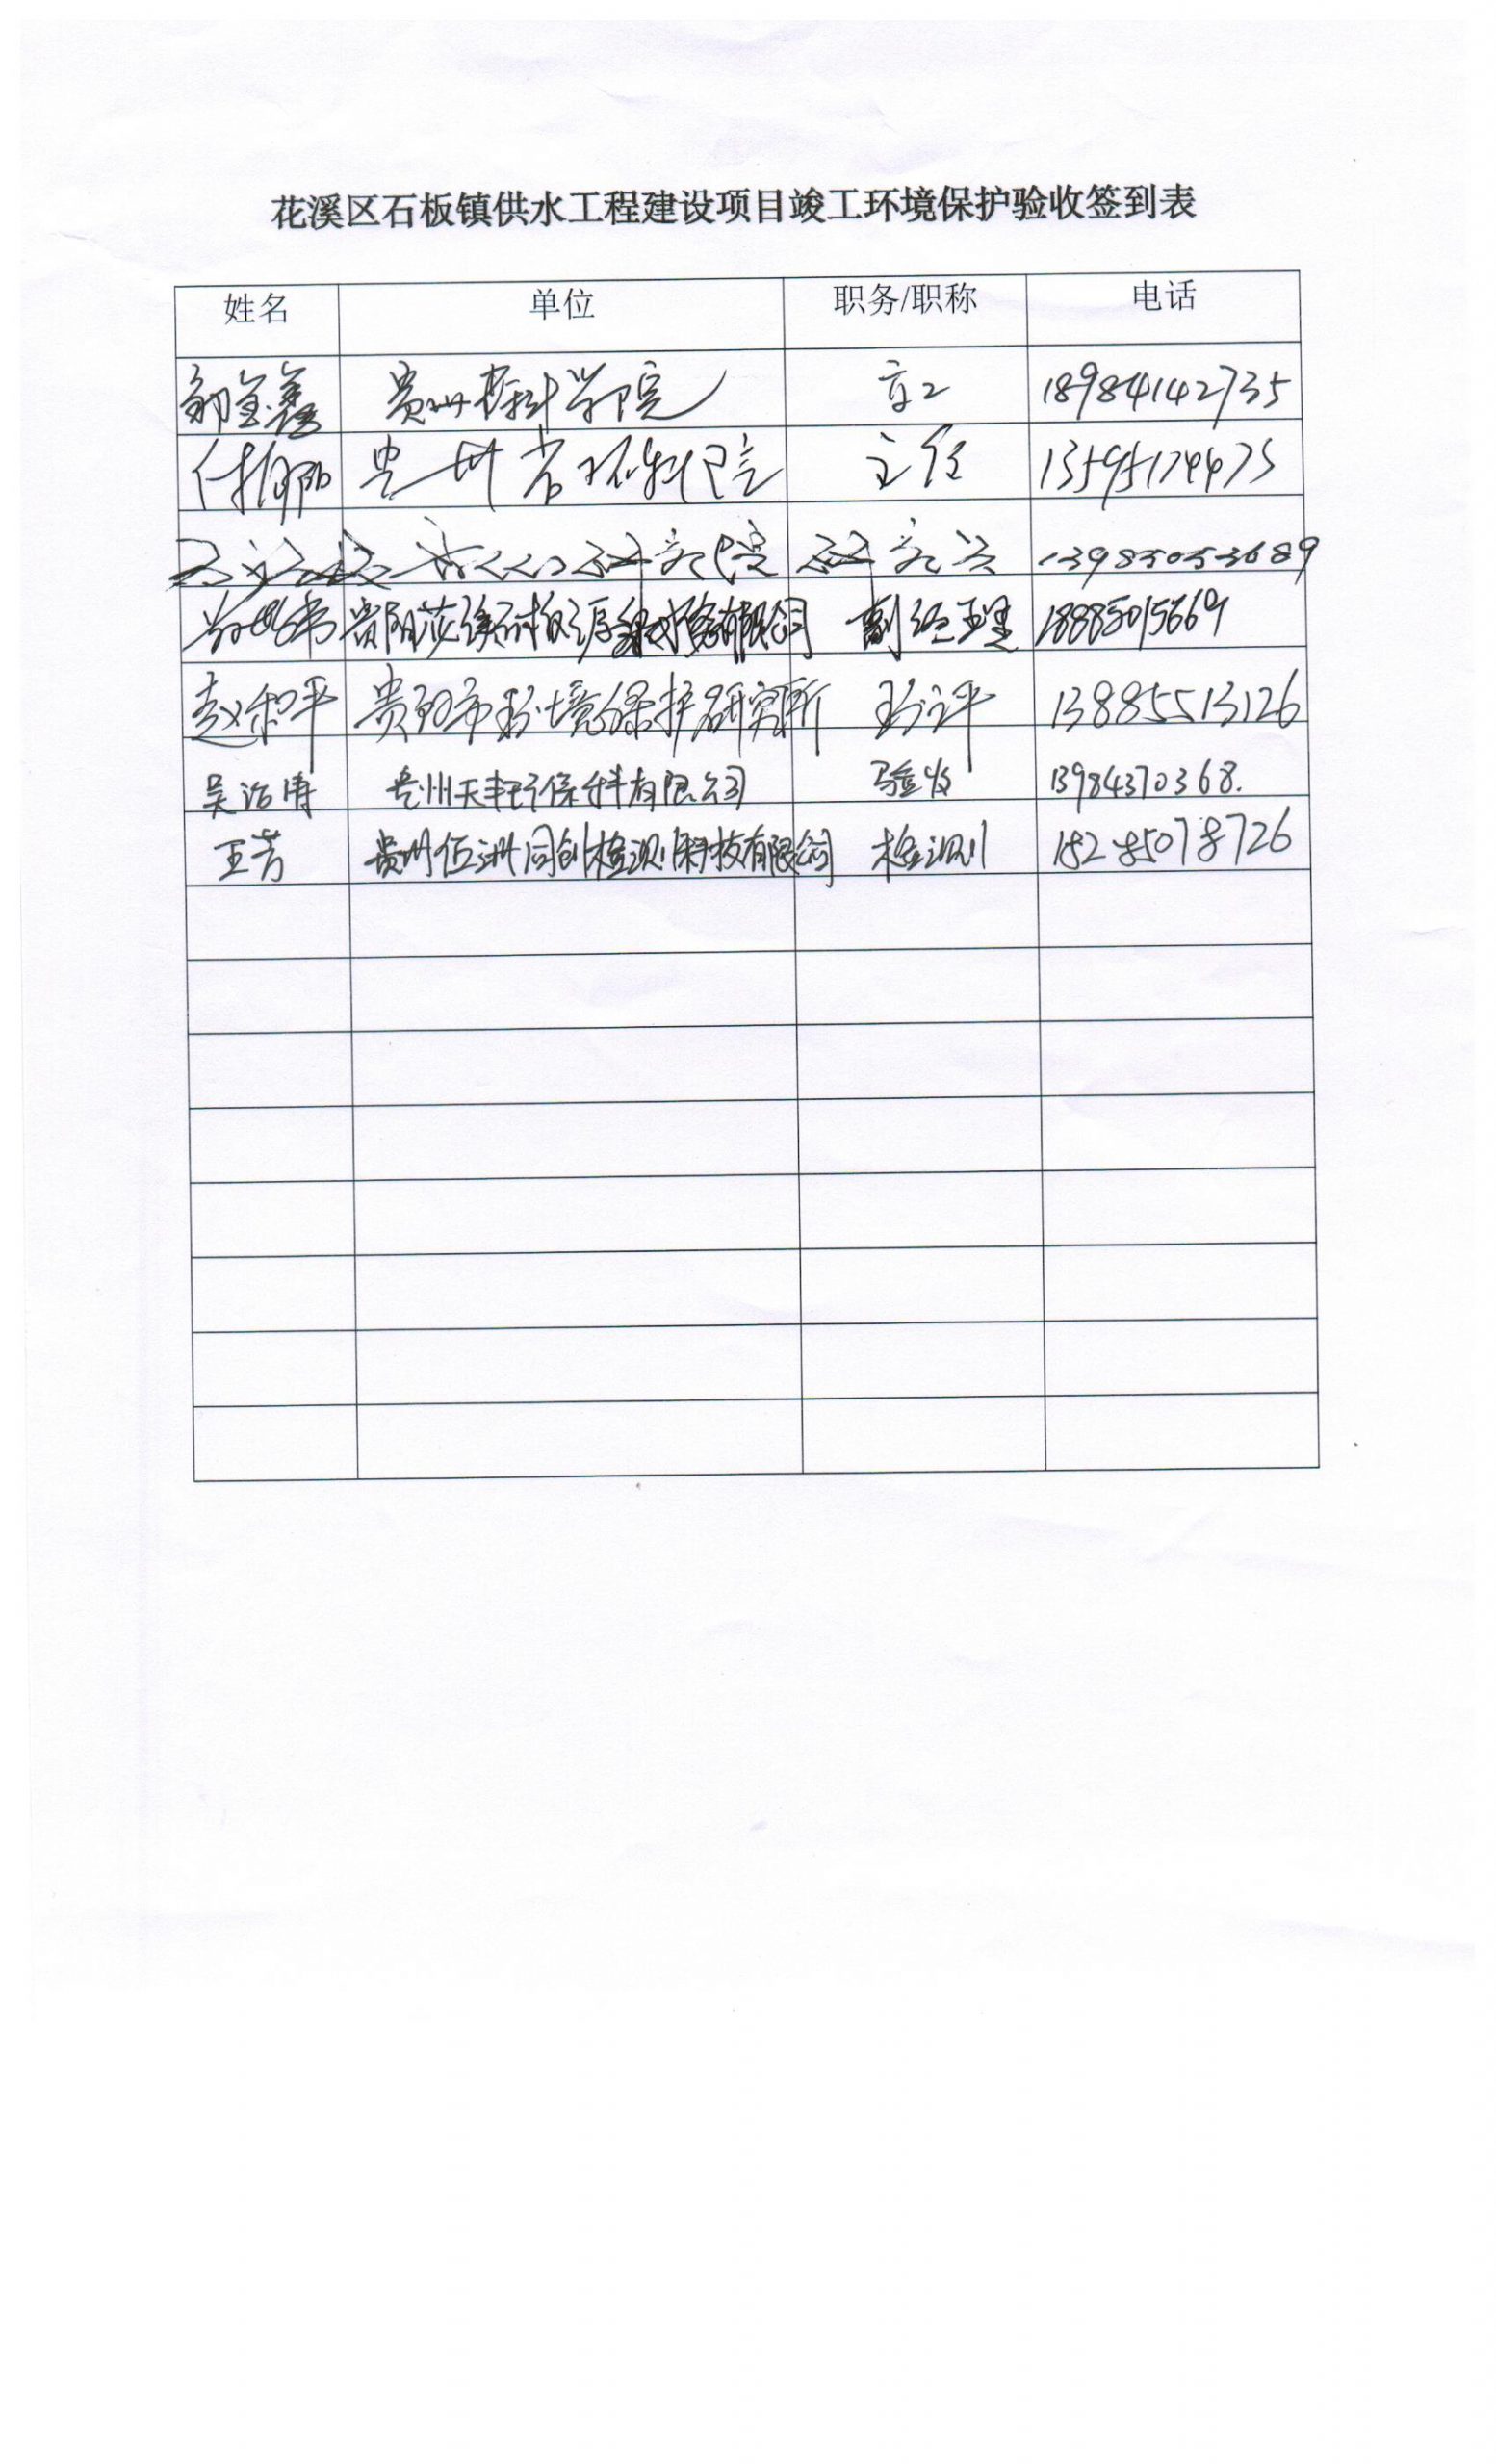 花溪区石板镇供水工程建设项目竣工环境保护验收签到表
姓名 单位 职务/职称 电话
贵州 科学院 高工 18984142735
付 贵州省环科院 主任 13595174473
研究院 研究员 13985053689
贵阳花溪石板 水务有限公司 副经理 18885015669
赵和平 贵阳市环境保护研究所 环评 13885513126
吴 涛 贵州天丰环保科有限公司 验收 13984370368.
王芳 贵州伍洲同创检测科技有限公司 检测 18285078726